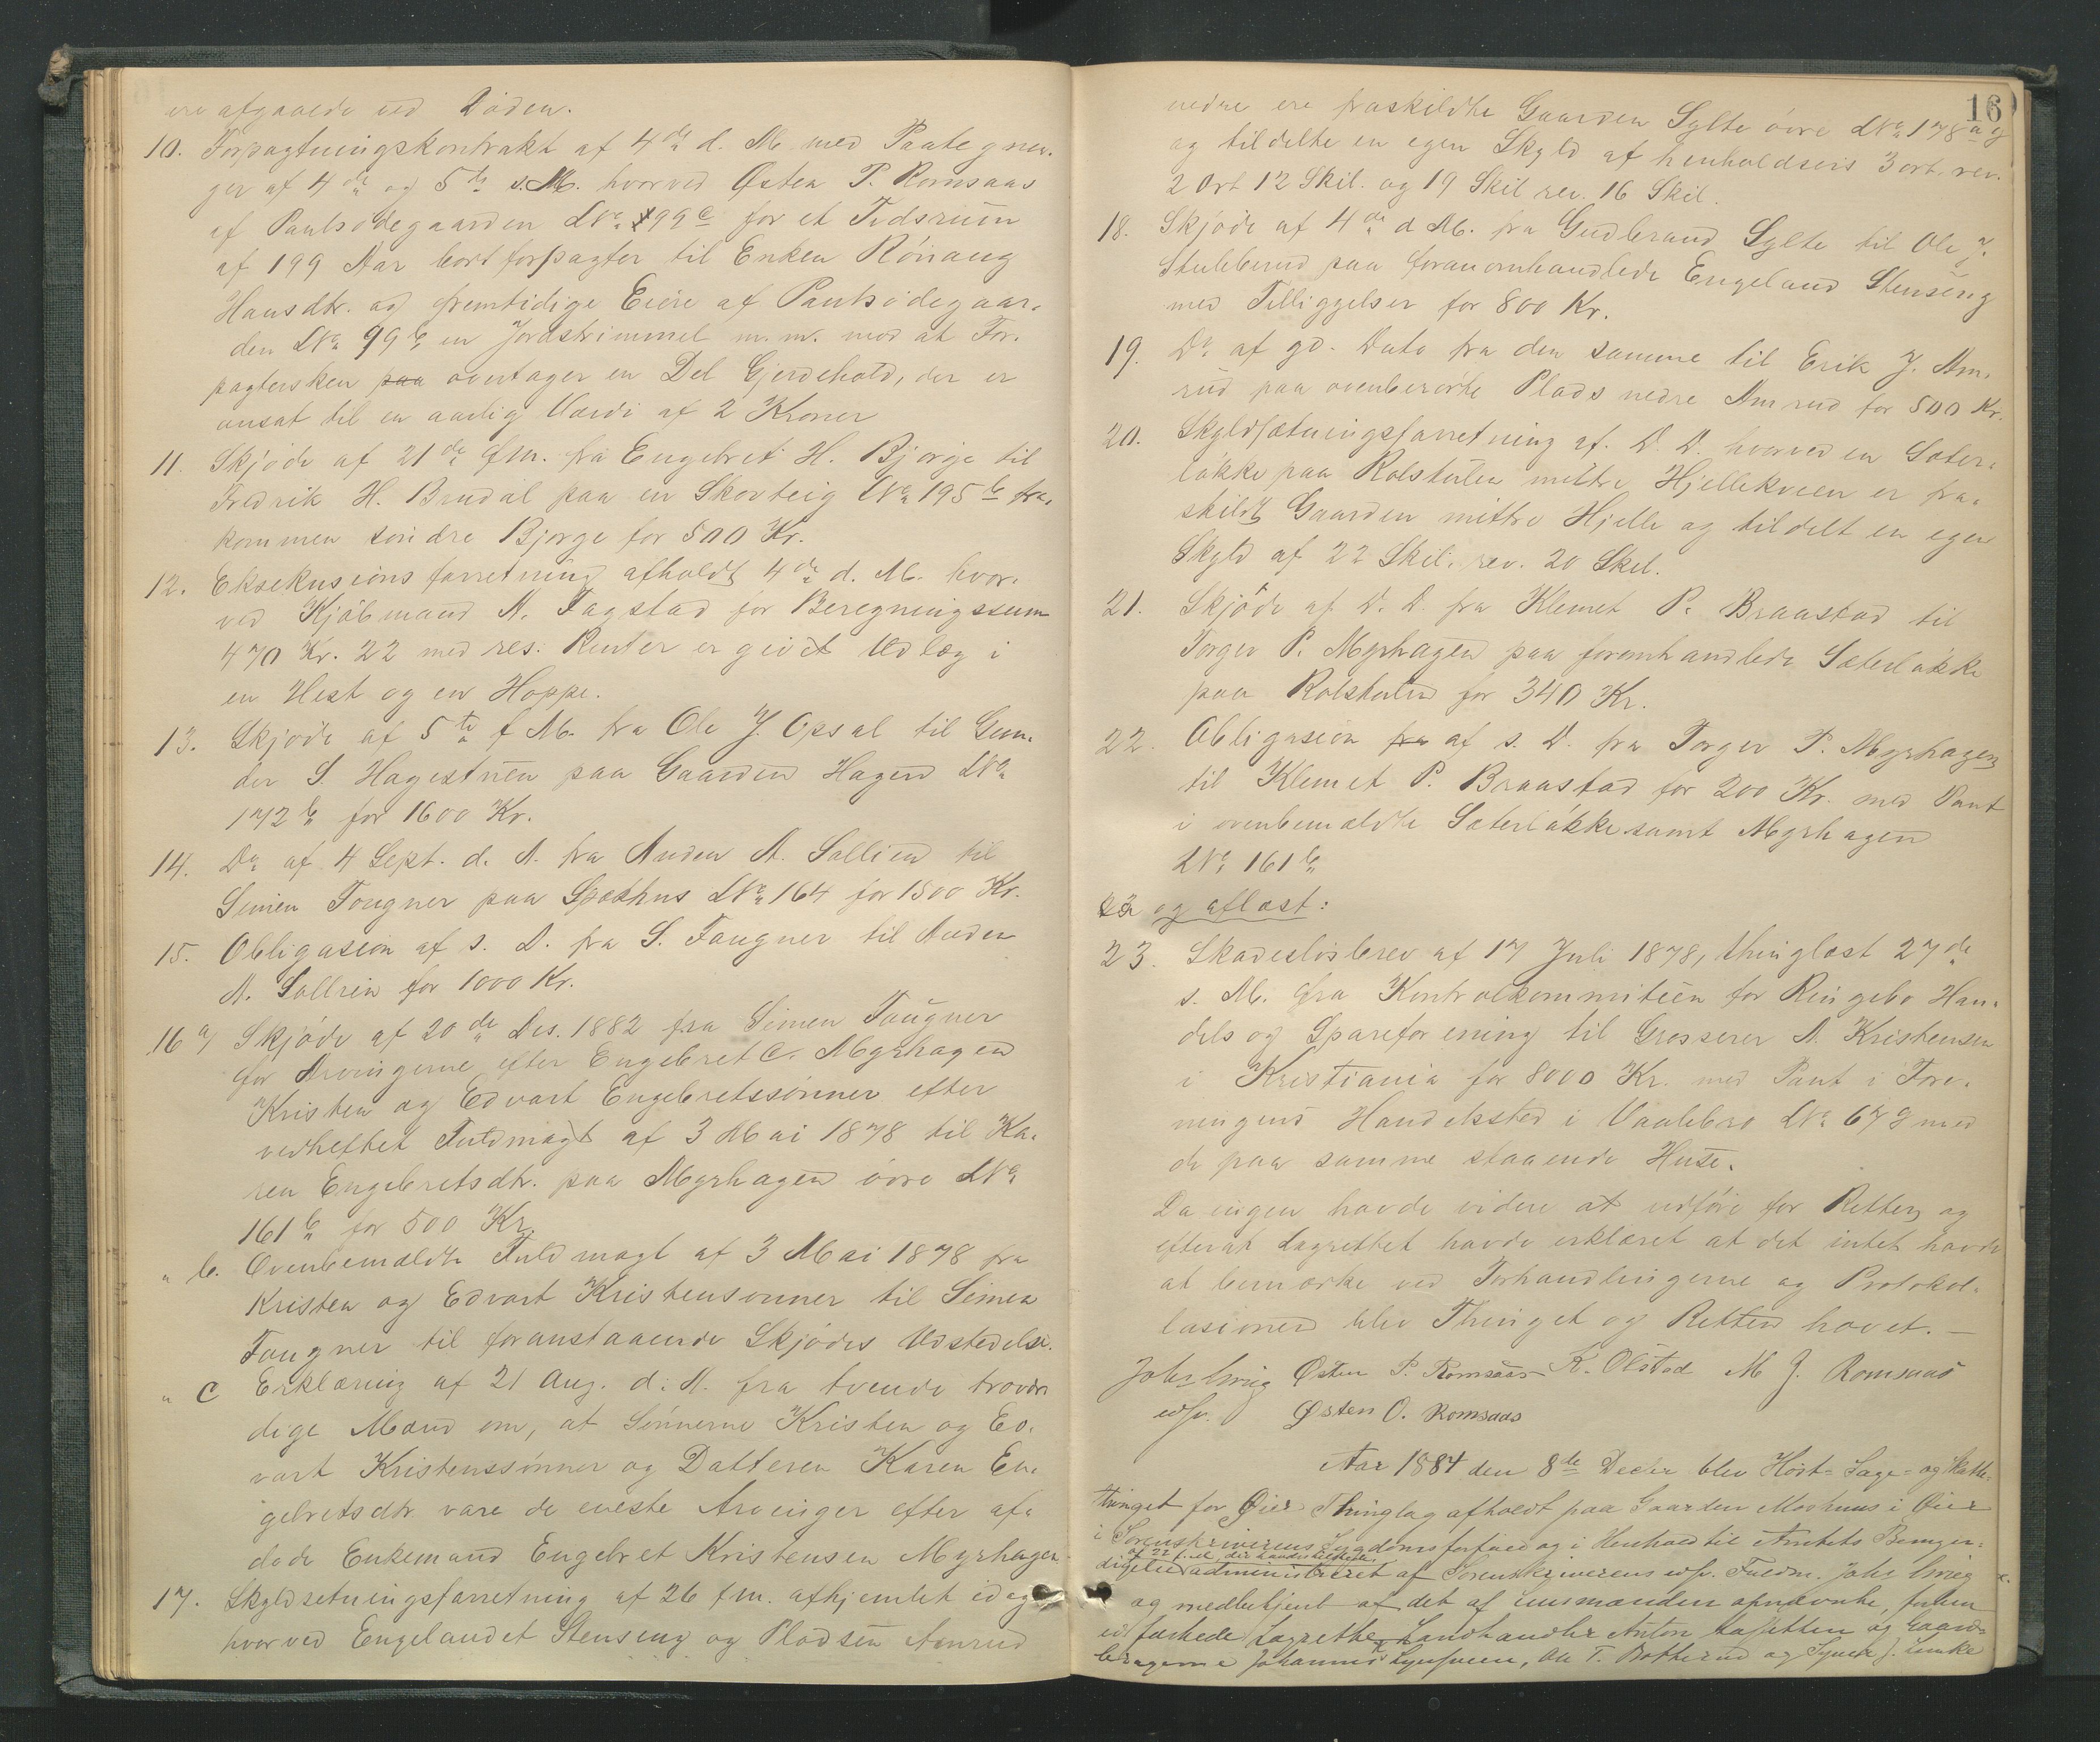 ere afgaaede ved Døden.
10. Forpagtningskontrakt af 4de d. M. med Paategnin-
ger af 4de og 5te s. M. hvorved Østen P. Romsaas
af Paulsødegaarden LNo 99c for et Tidsrum
af 199 Aar bortforpagter til Enken Rønaug
Hansdtr. og fremtidige Eiere af Paulsødegaar-
den LNo 99b en Jordstrimmel m. m. mod at For-
pagtersken paa overtager en Del Gjerdehold, der er
ansat til en aarlig Værdi af 2 Kroner
11. Skjøde af 21de f. M. fra Engebret H. Bjørge til
Fredrik H. Brudal paa en Skovteig LNo 195b fra-
kommen søndre Bjørge for 500 Kr.
12. Eksekusionsforretning afholdt 4de d. M. hvor-
ved Kjøbmand A. Fagstad for Beregningssum
470 Kr. 22 med res. Renter er givet Udlæg i
en Hest og en Hoppe.
13. Skjøde af 5te f. M. fra Ole J. Opsal til Gun-
der S. Hagestuen paa Gaarden Hagen LNo
172b for 1600 Kr.
14. Do af 4 Sept. d. A. fra Anden A. Sollien til
Simen Fougner paa LNo 164 for 1500 Kr.
15. Obligasion af s. D. fra S. Fougner til Anden
A. Sollien for 1000 Kr.
16 a) Skjøde af 20de Des. 1882 fra Simen Fougner
for Arvingerne efter Engebret C. Myrhagen
Kristen og Edvart Engebretssønner efter
vedheftet Fuldmagt af 3 Mai 1878 til Ka-
ren Engebretsdtr. paa Myrhagen øvre LNo
161b for 500 Kr.
" b. Ovenbemældte Fuldmagt af 3 Mai 1878 fra
Kristen og Edvart Kristensønner til Simen
Fougner til foranstaaende Skjødes Udstedelse.
" c Erklæring af 21 Aug. d. A. fra tvende trovær
dige Mænd om, at Sønnerne Kristen og Ed-
vart Kristenssønner og Datteren Karen En-
gebretsdtr vare de eneste Arvinger efter af-
døde Enkemand Engebret Kristensen Myrhagen
17. Skyldsetningsforretning af 26 f. M. afhjemlet idag
hvorved Engelandet Stenseng og Pladsen Amrud
16
nedre ere fraskildte Gaarden Sylte øvre LNo 178a
og tildelte en egen Skyld af henholdsvis 3 ort. rev.
2 Ort 12 Skil. og 19 Skil rev. 16 Skil.
18. Skjøde af 4de d. M. fra Gudbrand Sylte til Ole J.
Stubberud paa foranomhandlede Engeland Stenseng
med Tilliggelser for 800 Kr.
19. Do af gd. Dato fra den samme til Erik J. Am-
rud paa ovenberørte Plads nedre Amrud for 500 Kr.
20. Skyldsætningsforretning af D. D. hvorved en Sæter-
løkke paa Rolstulen mittre Hjellekveen er fra-
skildt Gaarden mittre Hjelle og tildelt en egen
Skyld af 22 Skil. rev. 20 Skil.
21. Skjøde af D. D. fra Klemet P. Braastad til
Torger P. Myrhagen paa foromhandlede Sæterløkke
paa Rolstulen for 340 Kr.
22. Obligasion fra af s. D. fra Torger P. Myrhagen
til Klemet P. Braastad for 200 Kr. med Pant
i ovenbemældte Sæterløkke samt Myrhagen
LNo 161b
og aflæst:
23. Skadesløsbrev af 17 Juli 1878, thinglæst 27de
s. M. fra Kontrolkommiteen for Ringebo Han-
dels og Spareforening til Grosserer A. Kristensen
i Kristiania for 8000 Kr. med Pant i Fore-
ningens Handelssted i Vaalebro LNo 67g med
de paa samme staaende Huse.
Da ingen havde videre at udføre for Retten og
efterat Lagrettet havde erklæret at det intet havde
at bemærke ved Forhandlingerne og Protokol-
lasionen blev Thinget og Retten hævet. —
Joh. Grieg Østen P. Romsaas K. Olstad M J. Romsaas
edsv. Østen O. Romsaas
Aar 1884 den 8de Decbr blev Høst- Sage- og Skatte-
thinget for Øier Thinglag afholdt paa Gaarden Moshuus i Øier
i Sorenskriverens Sygdomsforfald og i Henhold til Amtets Bemyn-
digelse administreret af Sorenskriverens edsv. Fuldm. Joh. Grieg
og medbetjent af det af Lensmanden opnævnte,
Lagrette Landhandler Anton og Gaard-
brugerne Johannes Ole T. Botterud og